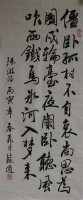 僵卧孤村不自哀尚思為
國戍輪臺夜闌卧聽風
吹雨鐵馬冰河入夢來
陸游詩 丙寅年春月